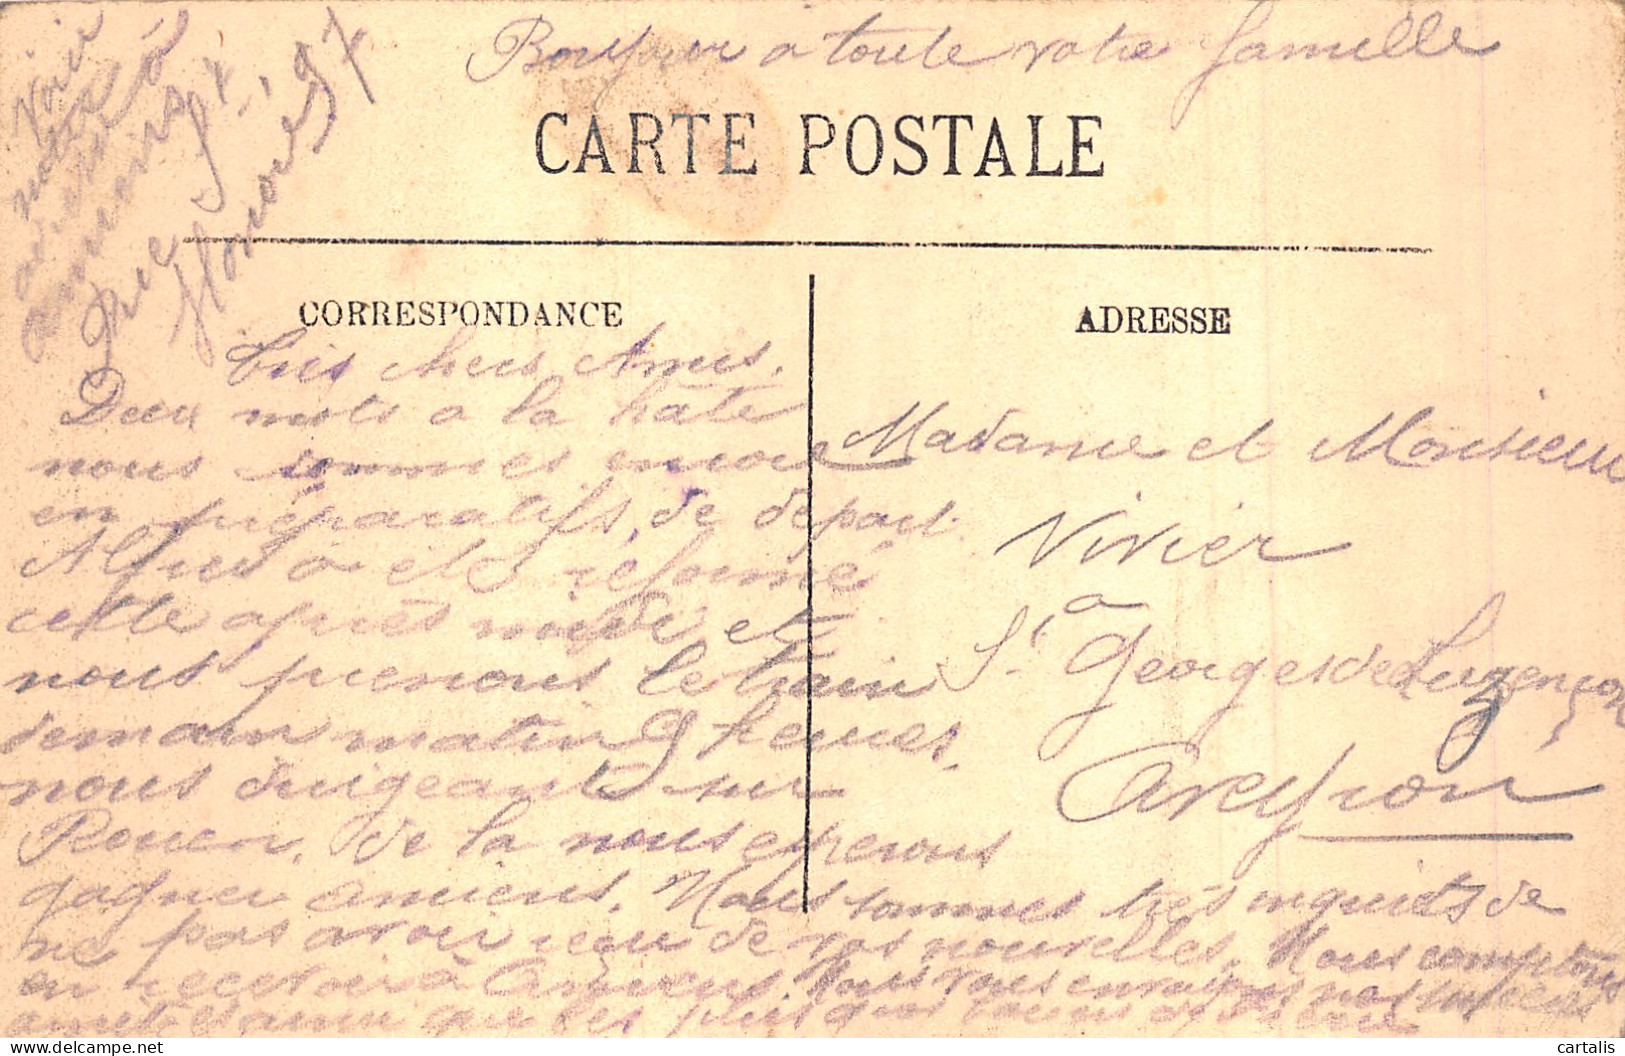 Bonjour à toute votre famille
Voici
notre
adresse à
Amiens
Rue St
Honoré 97
CARTE POSTALE
CORRESPONDANCE
ADRESSE
Très chers Amis.
Deux mots a la hâte
nous sommes encore
en préparatifs de départ.
Alfred a été réformé
cette après midi et
nous prenons le train
demain matin 9 heures.
nous dirigeant sur
Rouen. de la nous esperons
gagner amiens. Nous sommes très inquiets de
ne pas avoir reçu de vos nouvelles. Nous comptons
en recevoir à Amiens Nous vous envoyons nos
que les plus
Madame et Monsieur
Vivier
a
St Georges de Luzençon
Aveyron
cartalis